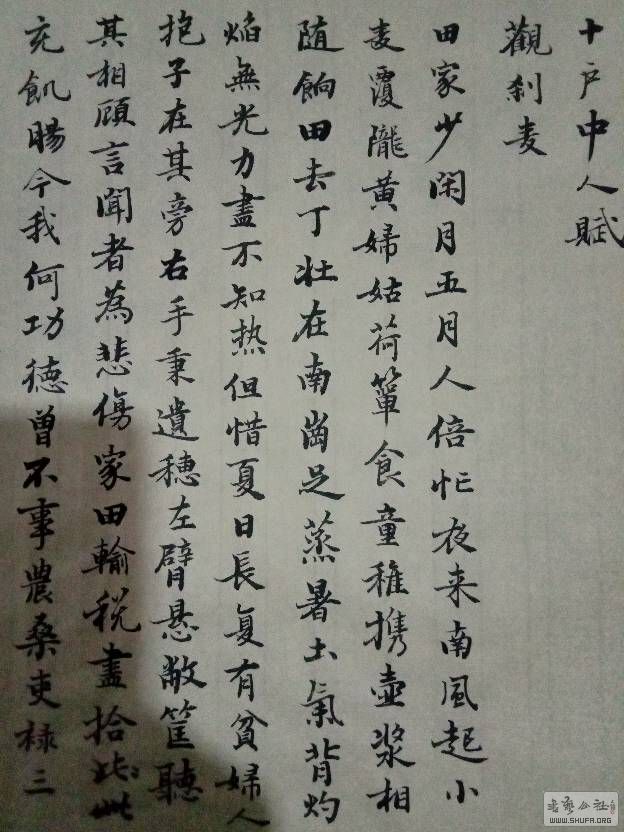 十户中人賦
觀刹麦
田家少閑月五月人倍忙夜来南風起小
麦覆隴黄婦姑荷簞食童稚携壺漿相
随餉田去丁壮在南崗足蒸暑土氣背灼
焰無光力盡不知热但惜夏日長复有貧婦人
抱子在其旁右手秉遺穗左臂悬敝筐聽
其相顧言聞者為悲傷家田輸税盡拾此此
充飢腸今我何功德曾不事農桑吏禄三
书艺公社
WWW.SHUFA.ORG